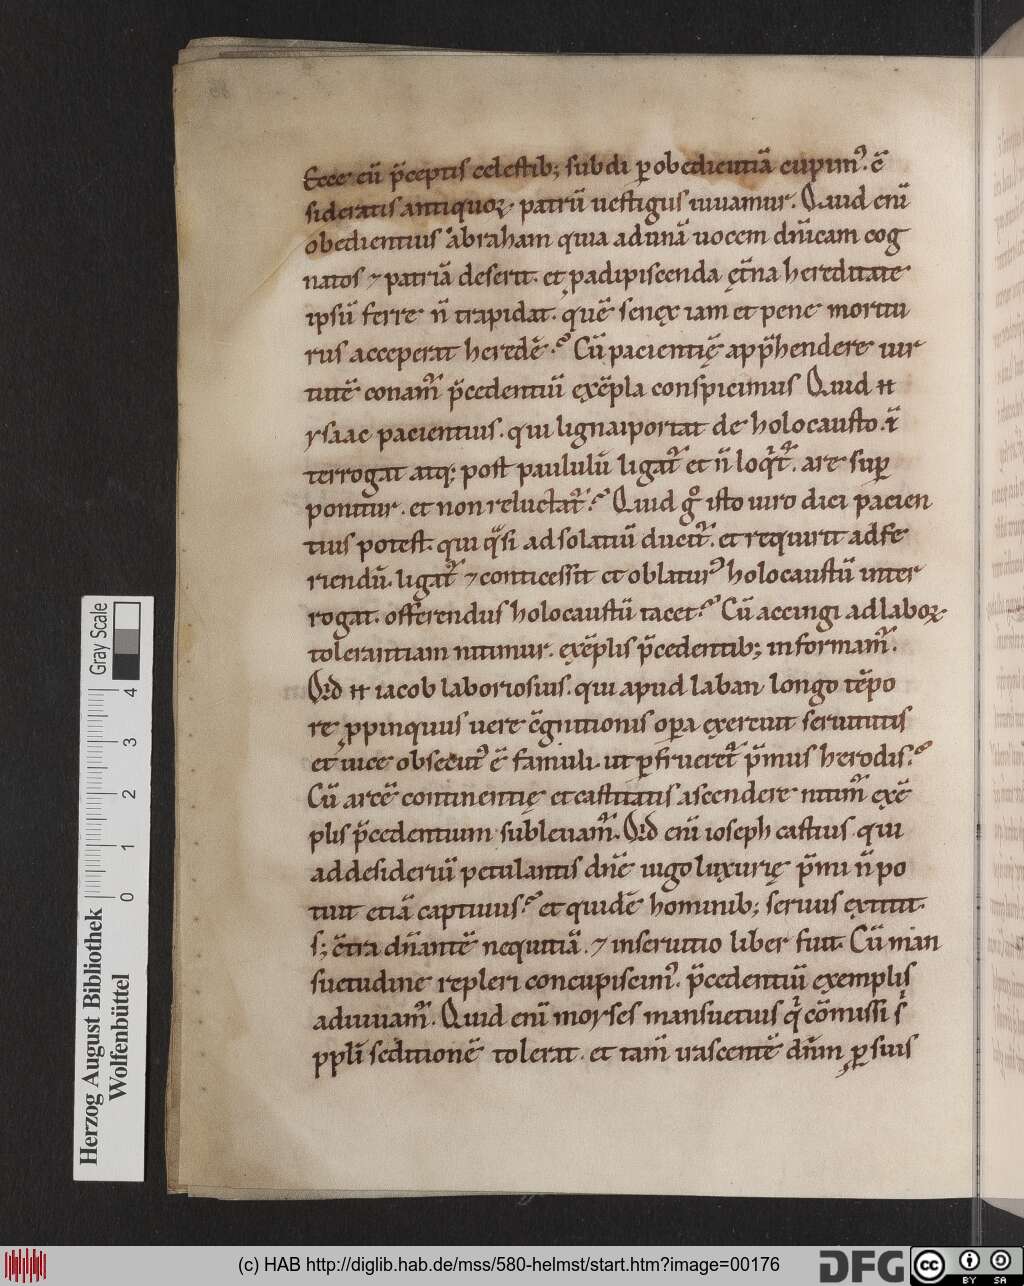 Ecce cū p̄ceptis celestib; subdi ꝑ obedientiā cupimꝰ. c̄
sideratis antiquoꝝ patrū uestigiis iuuamur. Quid enī
obedientius abraham quia ad unā uocem dn̄icam cog
natos ⁊ patriā deserit. et ꝓ adipiscenda ęt̄na hereditate
ipsū ferire n̄ trapidat. quē senex iam et pene moritu
rus acceperat heredē? Cū pacientię̄ app̄hendere uir
tutē conamr̄ p̄cedentiū exēpla conspicimus Quid ⁊
ysaac pacientius. qui ligna portat de holocausto. ī
terrogat atq; post paululū ligat᷑ et n̄ loqͥt᷑. are suꝑ
ponitur. et non reluctat᷑? Quid gͦ isto uiro dici pacien
tius potest. qui qͣsi ad solatiū ducit᷑. et requirit ad fe
riendū. ligat᷑ ⁊ conticessit et oblaturꝰ holocaustū inter
rogat. offerendus holocaustū tacet? Cū accingi ad laboꝝ
tolerantiam nitimur. exēplis p̄cedentib; informamr̄.
Qͥd ⁊ iacob laboriosius. qui apud laban longo tēpo
re ꝓpinquus uere c̄gnitionis oꝑa exercuit seruitutis
et uice obsecutꝰ ē famuli. ut ꝑfrueret᷑ p̄mus herodis?
Cū arcē continentię et castitatis ascendere nitimr̄ exē
plis p̄cedentium subleuamr̄. Qͥd enī ioseph castius qui
ad desideriū petulantis dn̄e iugo luxurię p̄mi n̄ po
tuit etiā captiuus? et quidē hominib; seruus extitit.
s; c̄tra dn̄antē nequitiā. ⁊ in seruitio liber fuit. Cū man
suetudine repleri concupiscimꝰ. p̄cedentiū exemplis
adiuuamr̄. Quid enī moyses mansuetius qͥ cōmissi sͥ
ppl̄i seditionē tolerat. et tam̄ irascentē dn̄m ꝓ suis
Herzog August Bibliothek
Wolfenbüttel
0 1 2 3 4
Gray Scale
(c) HAB http://diglib.hab.de/mss/580-helmst/start.htm?image=00176
DFG
cc BY SA